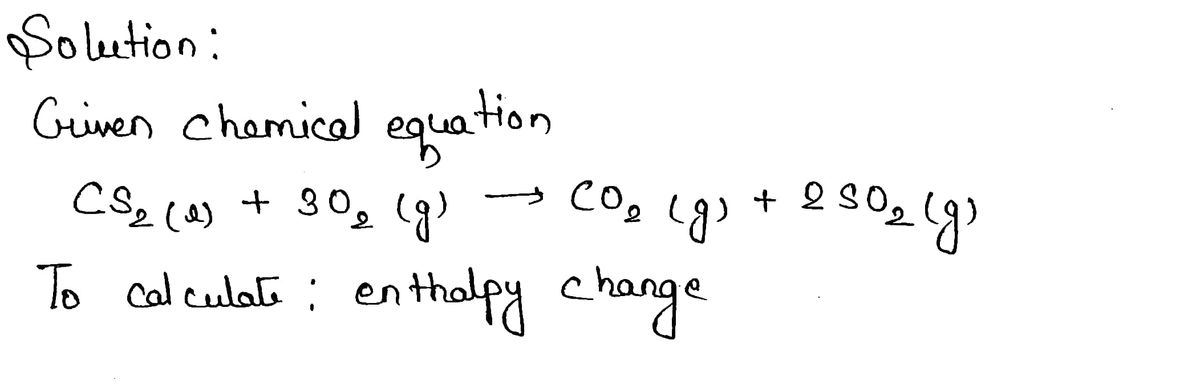 Solution:
Given chemical equation
CS₂ (l) + 3O₂ (g) → CO₂ (g) + 2SO₂ (g)
To calculate : enthalpy change